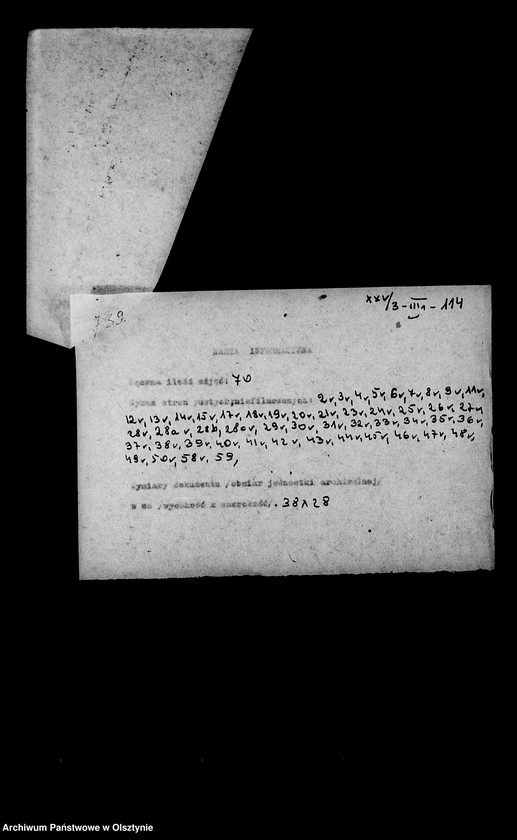 739.
XXV/3-III1-114
KARTA INFORMACYJNA
Łączna ilość zdjęć: 70
Wykaz stron pustych, niefilmowanych: 2v, 3v, 4v, 5v, 6v, 7v, 8v, 9v, 11v,
12v, 13v, 14v, 15v, 17v, 18v, 19v, 20v, 21v, 23v, 24v, 25v, 26v, 27v,
28v, 28a v, 28b, 28cv, 29v, 30v, 31v, 32v, 33v, 34v, 35v, 36v,
37v, 38v, 39v, 40v, 41v, 42v, 43v, 44v, 45v, 46v, 47v, 48v,
49v, 50v, 58v, 59,
Wymiary dokumentu /obmiar jednostki archiwalnej/
w cm /wysokość x szerokość/. 38x28
Archiwum Państwowe w Olsztynie